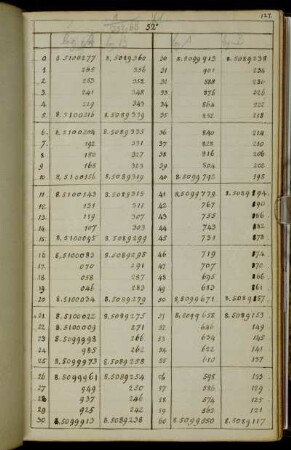 127.
52°
0 8.5100277 8.5089360 30 8.5099913 8.5089238
1 265 356 31 901 234
2 253 352 32 888 230
3 241 348 33 876 226
4 229 343 34 864 222
5. 8.5100216 8.5089339 35 852 218
6. 8.5100204 8.5089335 36 840 214
7. 192 331 37 828 210
8. 180 327 38 816 206
9. 168 323 39 804 202
10. 8.5100156 8.5089319 40 8.5099792 198
11. 8.5100143 8.5089315 41 8.5099779 8.5089194
12. 131 311 42 767 190
13. 119 307 43 755 186
14. 107 303 44 743 182
15. 8.5100095 8.5089299 45 731 178
16. 8.5100083 8.5089295 46 719 174
17. 070 291 47 707 170
18. 058 287 48 695 166
19. 046 283 49 683 161
20. 8.5100034 8.5089279 50 8.5099671 8.5089157
21. 8.5100022 8.5089275 51 8.5099658 8.5089153
22. 8.5100009 271 52 646 149
23. 8.5099998 266 53 634 145
24. 985 262 54 622 141
25. 8.5099973 8.5089258 55 610 137
26 8.5099961 8.5089254 56 598 133
27 949 250 57 586 129
28 937 246 58 574 125
29 925 242 59 562 121
30. 8.5099913 8.5089238 60. 8.5099550 8.5089117